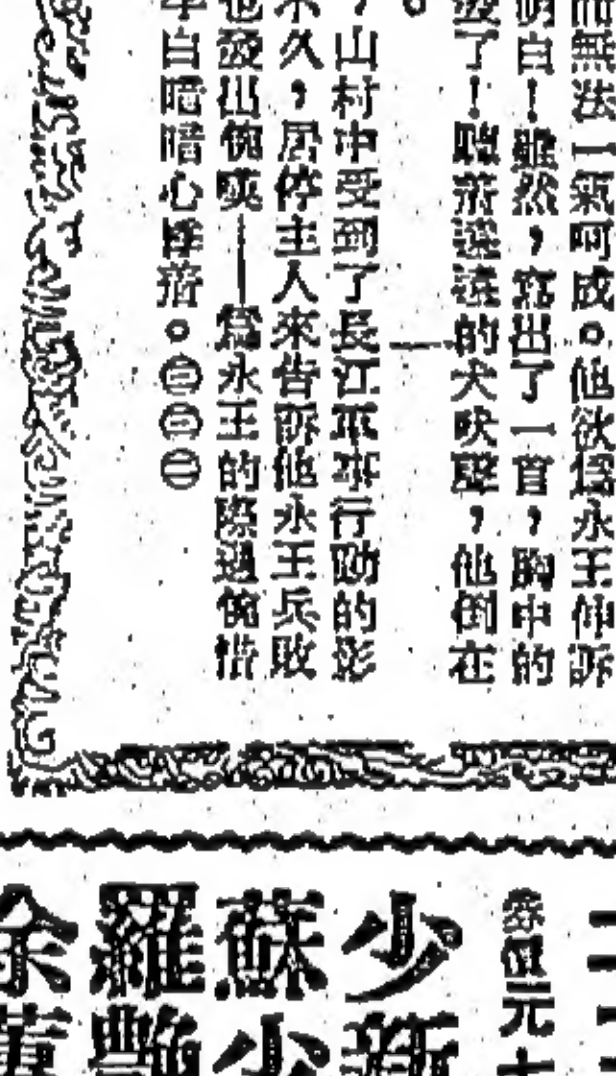 而無法一氣呵成。他欲爲永王伸訴
明白!雖然,寫出了一首,胸中的
了!聽着遠遠的犬吠聲,他倒在
。
,山村中受到了長江軍事行動的影
不久,居停主人來告訴他永王兵敗
也發出惋嘆——爲永王的際遇惋惜
李白暗暗心悸着。㊂㊂㊁
元
少
蘇少
羅艷
余